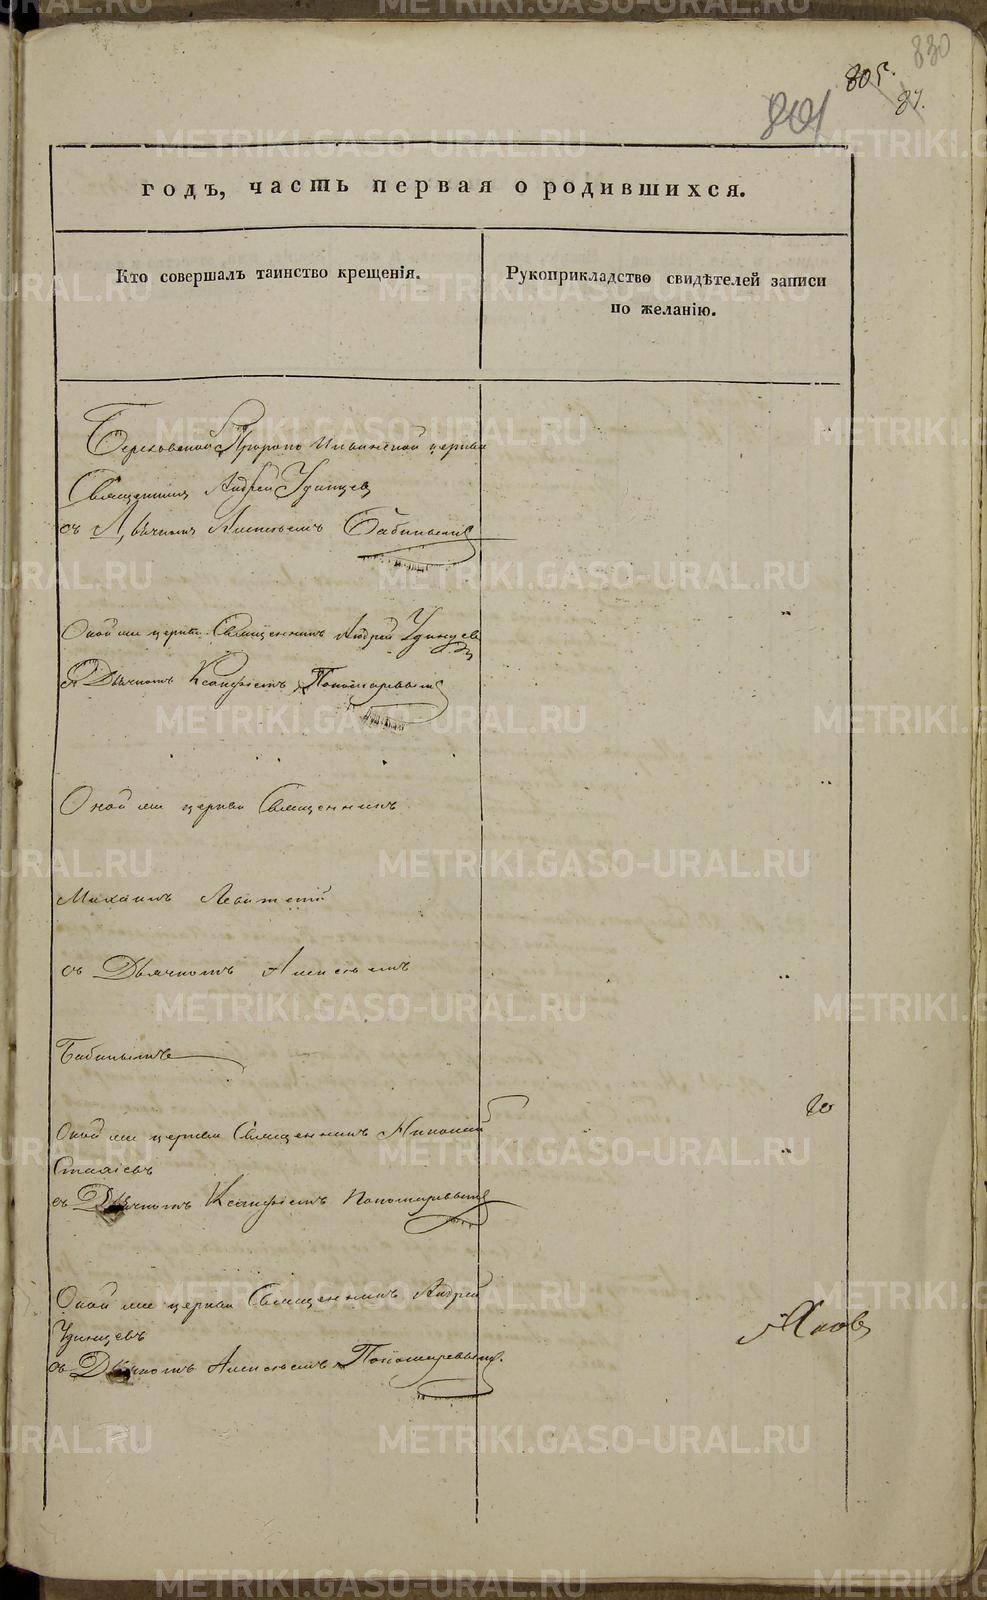 830
805.
87.
801
годъ, часть первая о родившихся.
Кто совершалъ таинство крещенія.
Рукоприкладство свидѣтелей записи
по желанію.
Пророко Ильинской церкви
Священникъ Андрей Удинцевъ
съ Алексѣемъ
Оной же церкви Священникъ Андрей Удинцевъ
съ Дьячкомъ Ксенофонтомъ Пономаревымъ
Оной же церкви Священникъ
Михаилъ
съ Дьячкомъ Алексѣемъ
Бабинымъ
Оной же церкви Священникъ Николай
съ Дьячкомъ Ксенофонтомъ Пономаревымъ
Оной же церкви Священникъ Андрей
Удинцевъ
съ Дьячкомъ Алексѣемъ Пономаревымъ.
Яковъ
METRIKI.GASO-URAL.RU